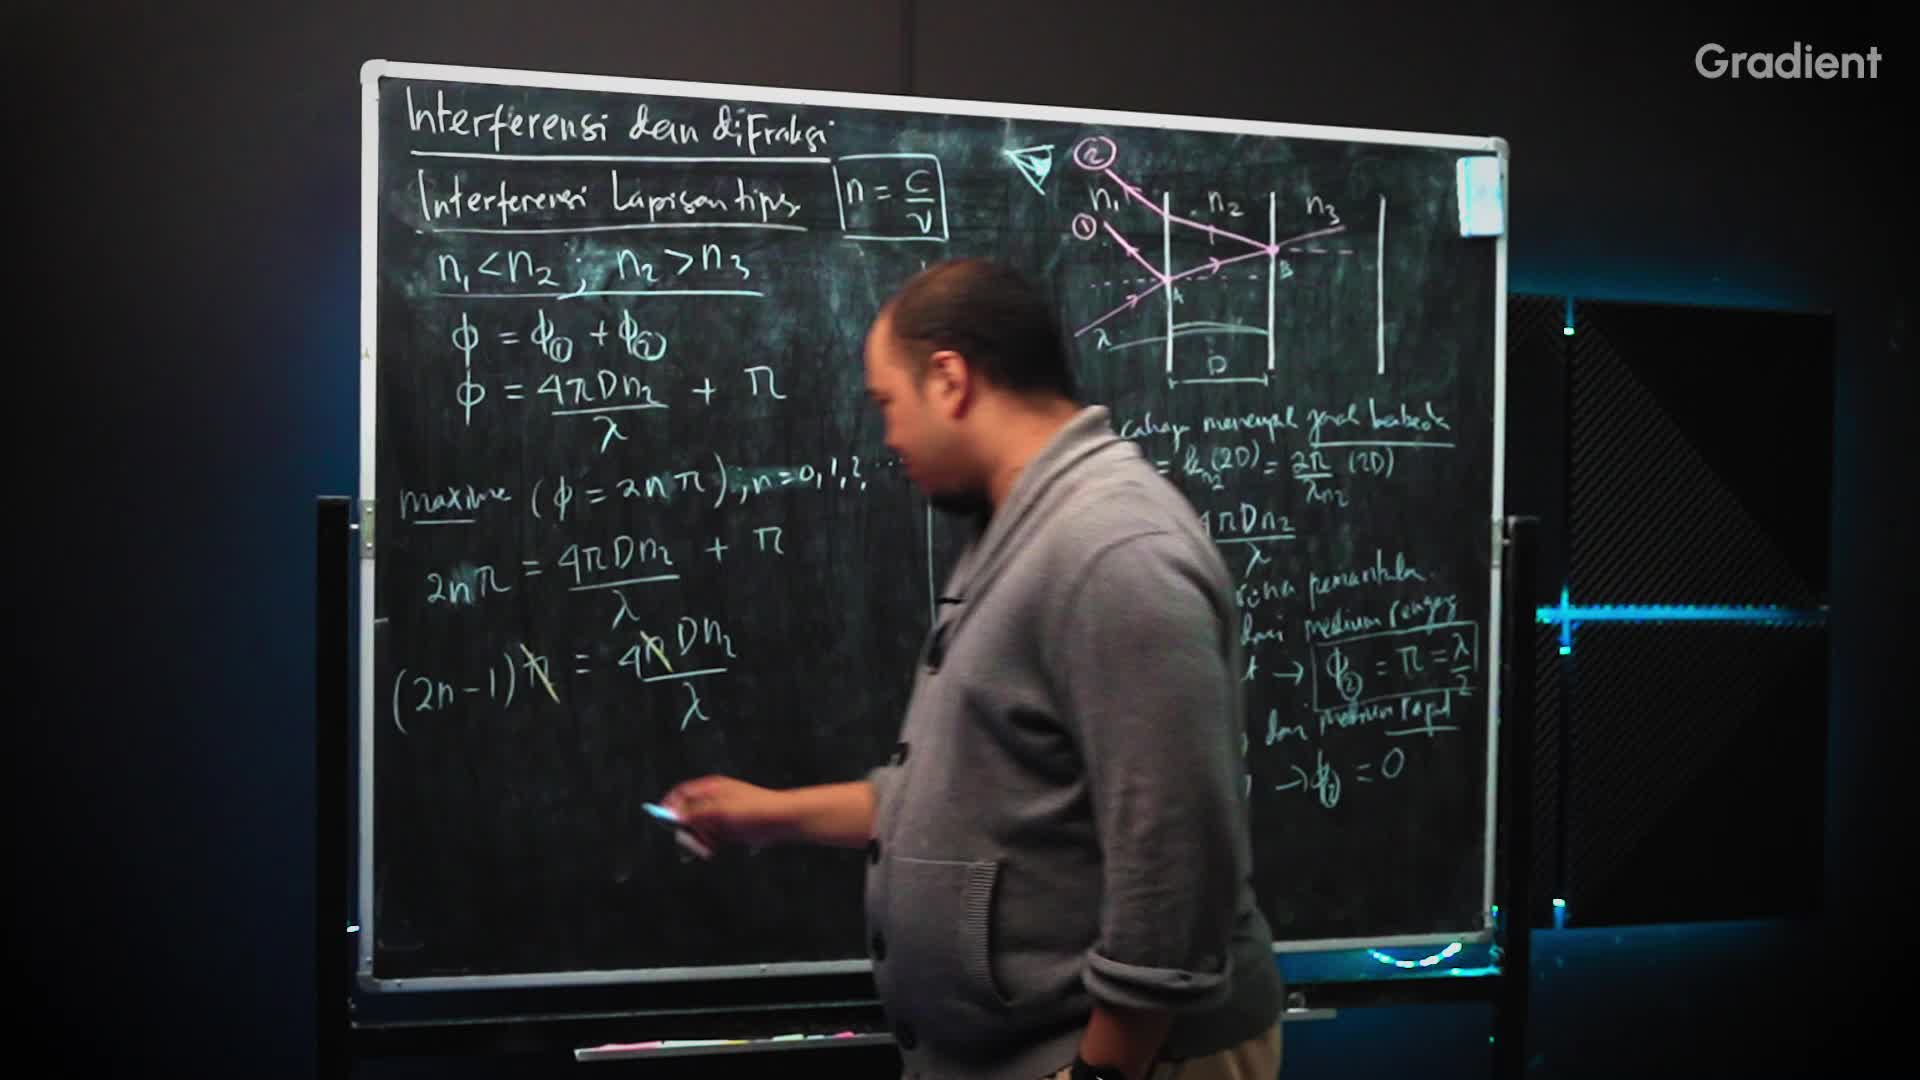 Gradient
Interferensi dan difraksi
Interferensi Lapisan tipis
n = c/v
n₁ < n₂ ; n₂ > n₃
ϕ = ϕ① + ϕ②
ϕ = 4πDn₂/λ + π
maxime (ϕ = 2nπ) ; n = 0, 1, 2, ...
2nπ = 4πDn₂/λ + π
(2n-1)π = 4πDn₂/λ
②
n₁ n₂ n₃
①
A B
λ
D
cahaya menempuh jarak berbeda
= k n₂ (2D) = 2π/λn₂ (2D)
4πDn₂/λ
pemantulan
dari medium renggang
→ ϕ② = π = λ/2
dari medium rapat
→ ϕ② = 0